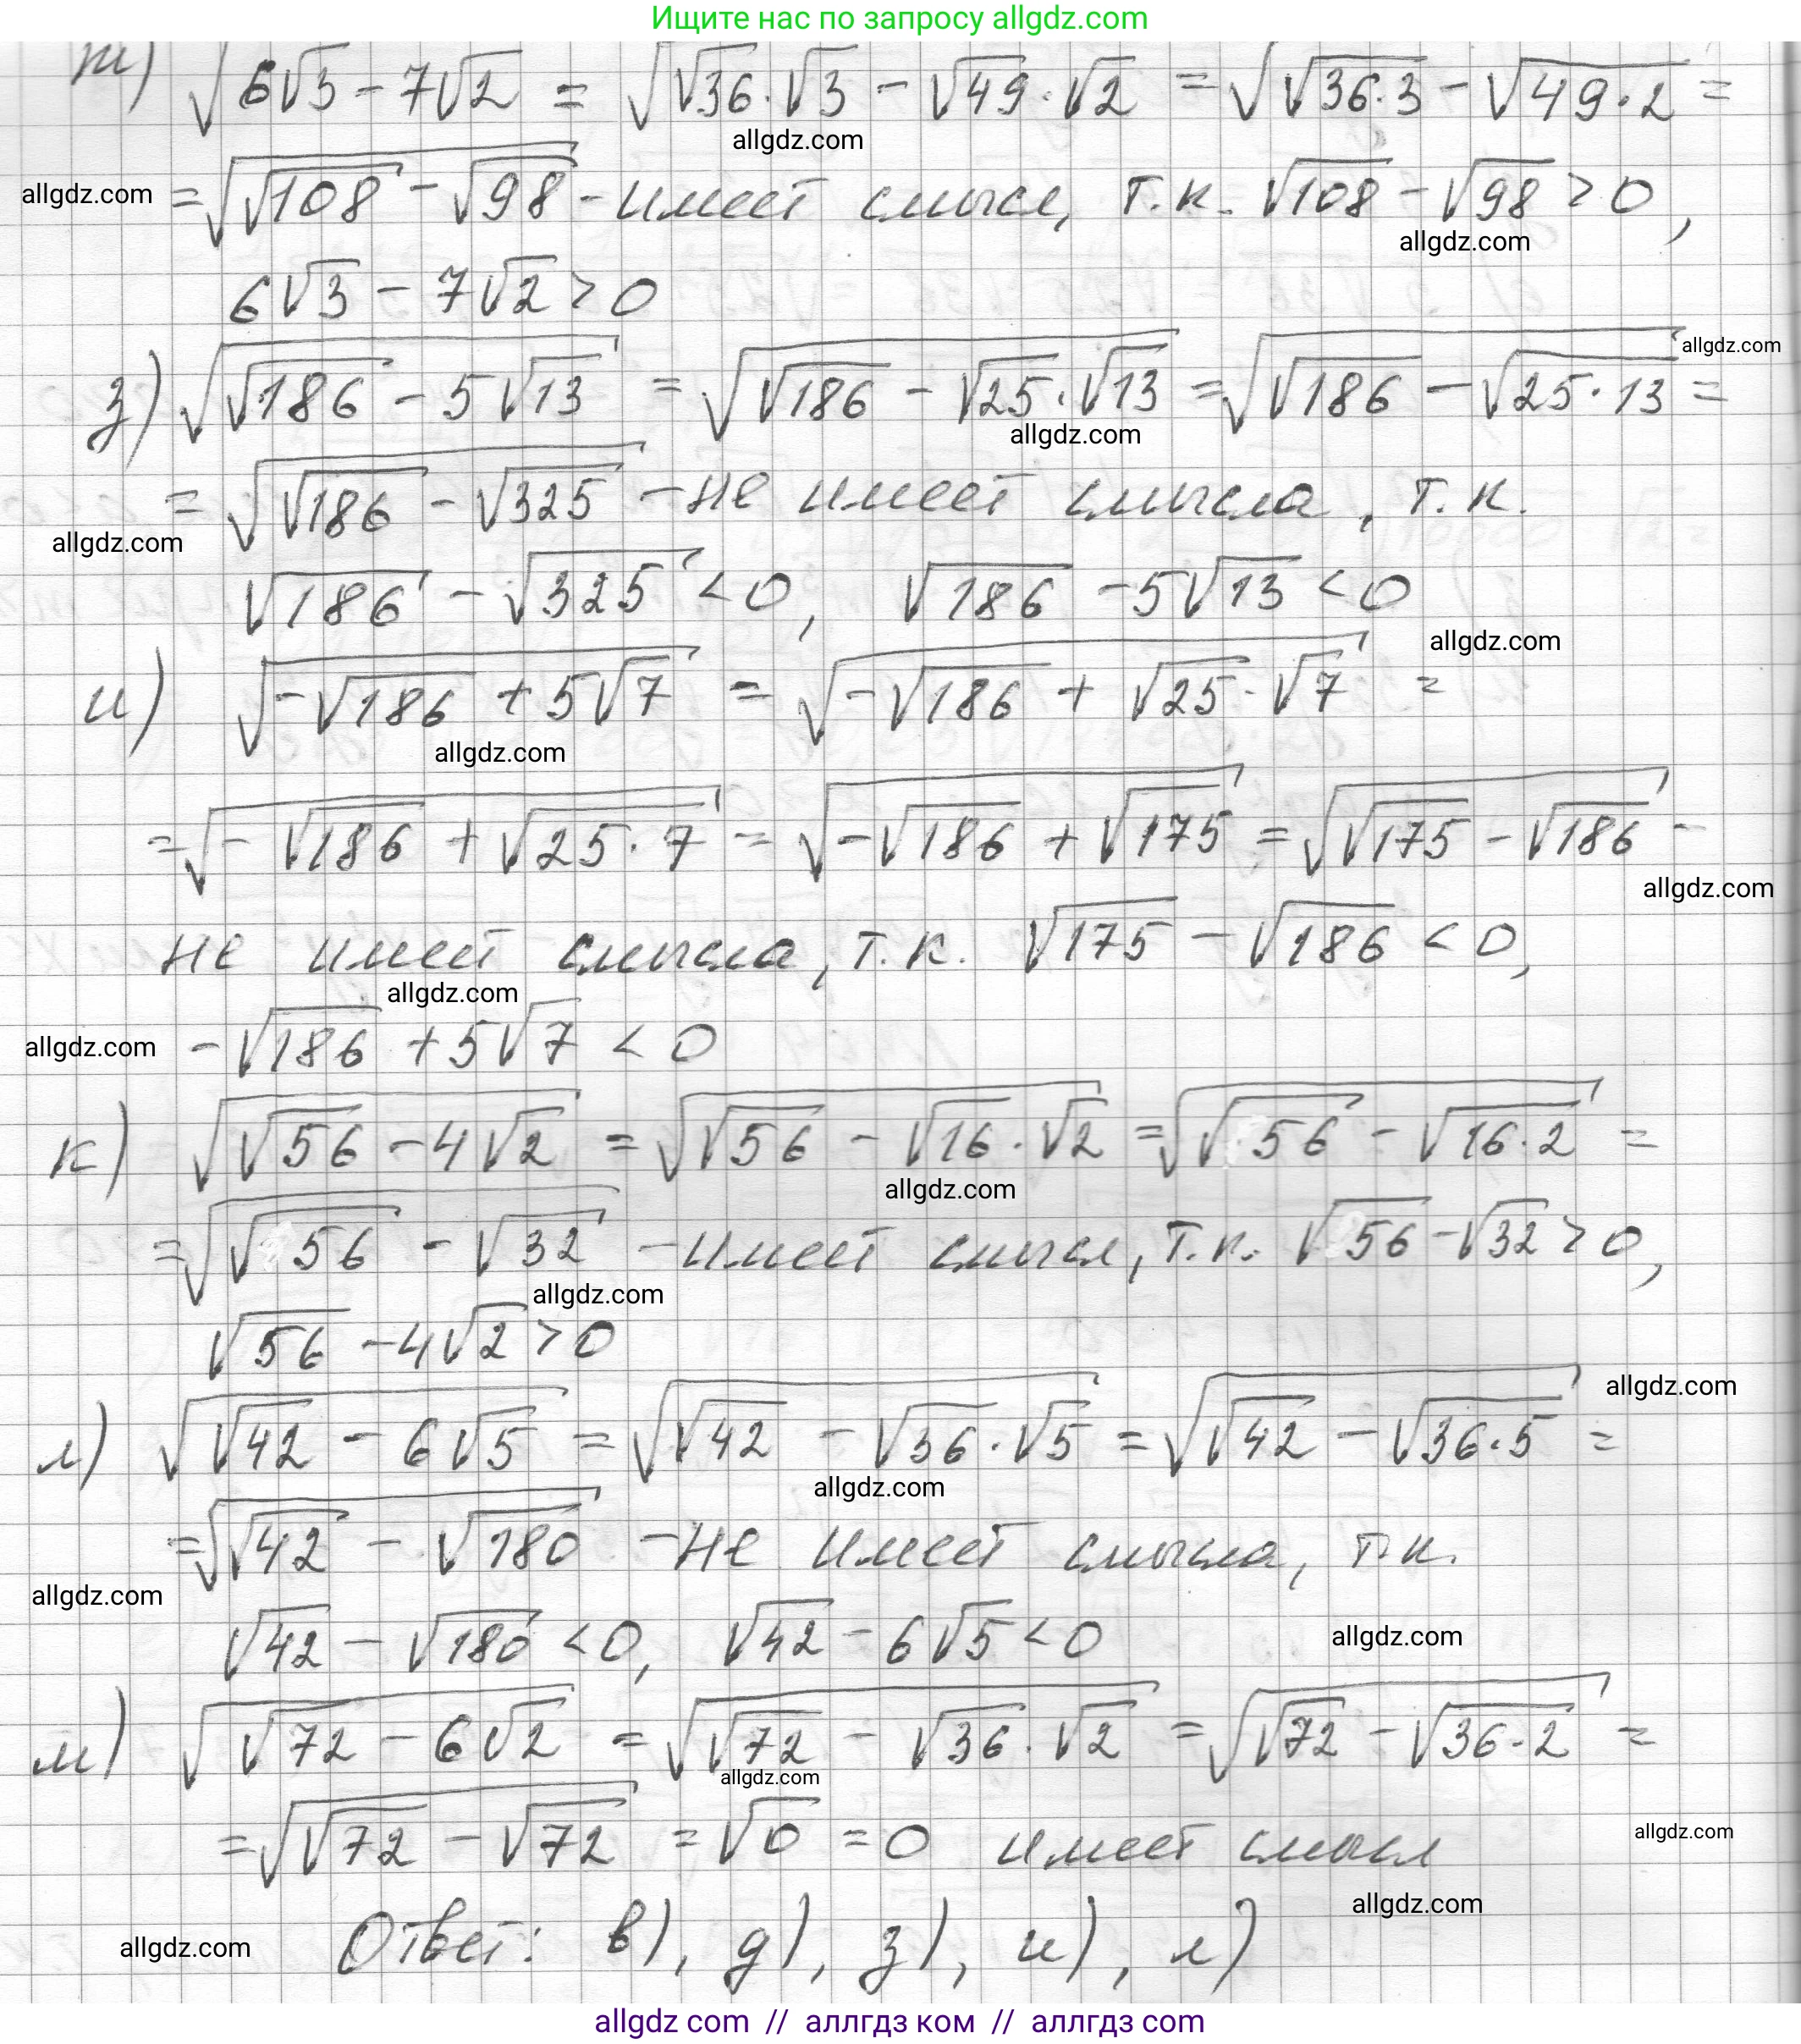 Ищите нас по запросу allgdz.com
ж) √(6√3 - 7√2) = √(√36·√3 - √49·√2) = √(√(36·3) - √(49·2)) =
allgdz.com
allgdz.com = √(√108 - √98) - имеет смысл, т.к. √108 - √98 > 0,
allgdz.com
6√3 - 7√2 > 0
allgdz.com
з) √(√186 - 5√13) = √(√186 - √25·√13) = √(√186 - √(25·13)) =
allgdz.com
= √(√186 - √325) - не имеет смысла, т.к.
allgdz.com
√186 - √325 < 0, √186 - 5√13 < 0
allgdz.com
и) √(-√186 + 5√7) = √(-√186 + √25·√7) =
allgdz.com
= √(-√186 + √(25·7)) = √(-√186 + √175) = √(√175 - √186) -
allgdz.com
не имеет смысла, т.к. √175 - √186 < 0,
allgdz.com
allgdz.com -√186 + 5√7 < 0
к) √(√56 - 4√2) = √(√56 - √16·√2) = √(√56 - √(16·2)) =
allgdz.com
= √(√56 - √32) - имеет смысл, т.к. √56 - √32 > 0,
allgdz.com
√56 - 4√2 > 0
allgdz.com
л) √(√42 - 6√5) = √(√42 - √36·√5) = √(√42 - √(36·5)) =
allgdz.com
= √(√42 - √180) - не имеет смысла, т.к.
allgdz.com
√42 - √180 < 0, √42 - 6√5 < 0
allgdz.com
м) √(√72 - 6√2) = √(√72 - √36·√2) = √(√72 - √(36·2)) =
allgdz.com
= √(√72 - √72) = √0 = 0 имеет смысл
allgdz.com
allgdz.com
Ответ: в), д), з), и), л)
allgdz.com
allgdz com // аллгдз ком // аллгдз com